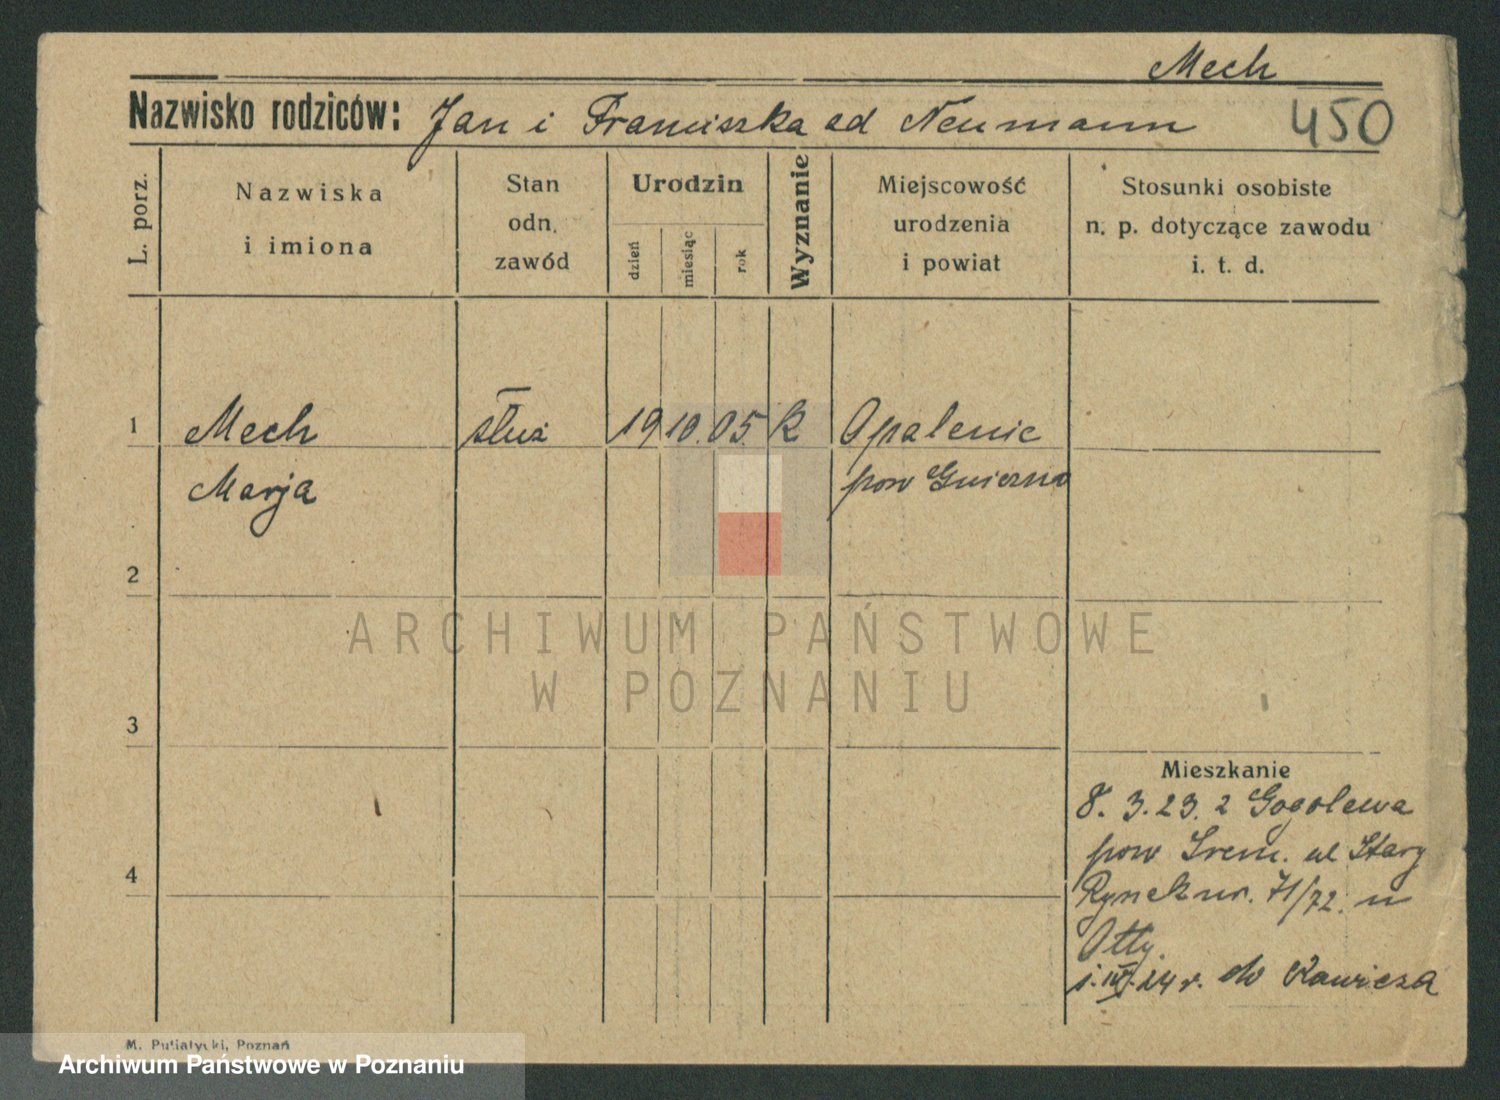 Mech
Nazwisko rodziców: Jan i Franciszka od Neumann 450
L. porz.
Nazwiska
i imiona
Stan
odn.
zawód
Urodzin
dzień
miesiąc
rok
Wyznanie
Miejscowość
urodzenia
i powiat
Stosunki osobiste
n. p. dotyczące zawodu
i. t. d.
1 Mech służ 19 10. 05. k Opalenic
Marja pow Gniezno
2
ARCHIWUM PAŃSTWOWE
W POZNANIU
3
Mieszkanie
8. 3. 23. z Gogolewa
pow Srem. ul Stary
4
Rynek nr. 71/72. u
Otty.
24 r. do Rawicza
M. Putiatycki, Poznań
Archiwum Państwowe w Poznaniu